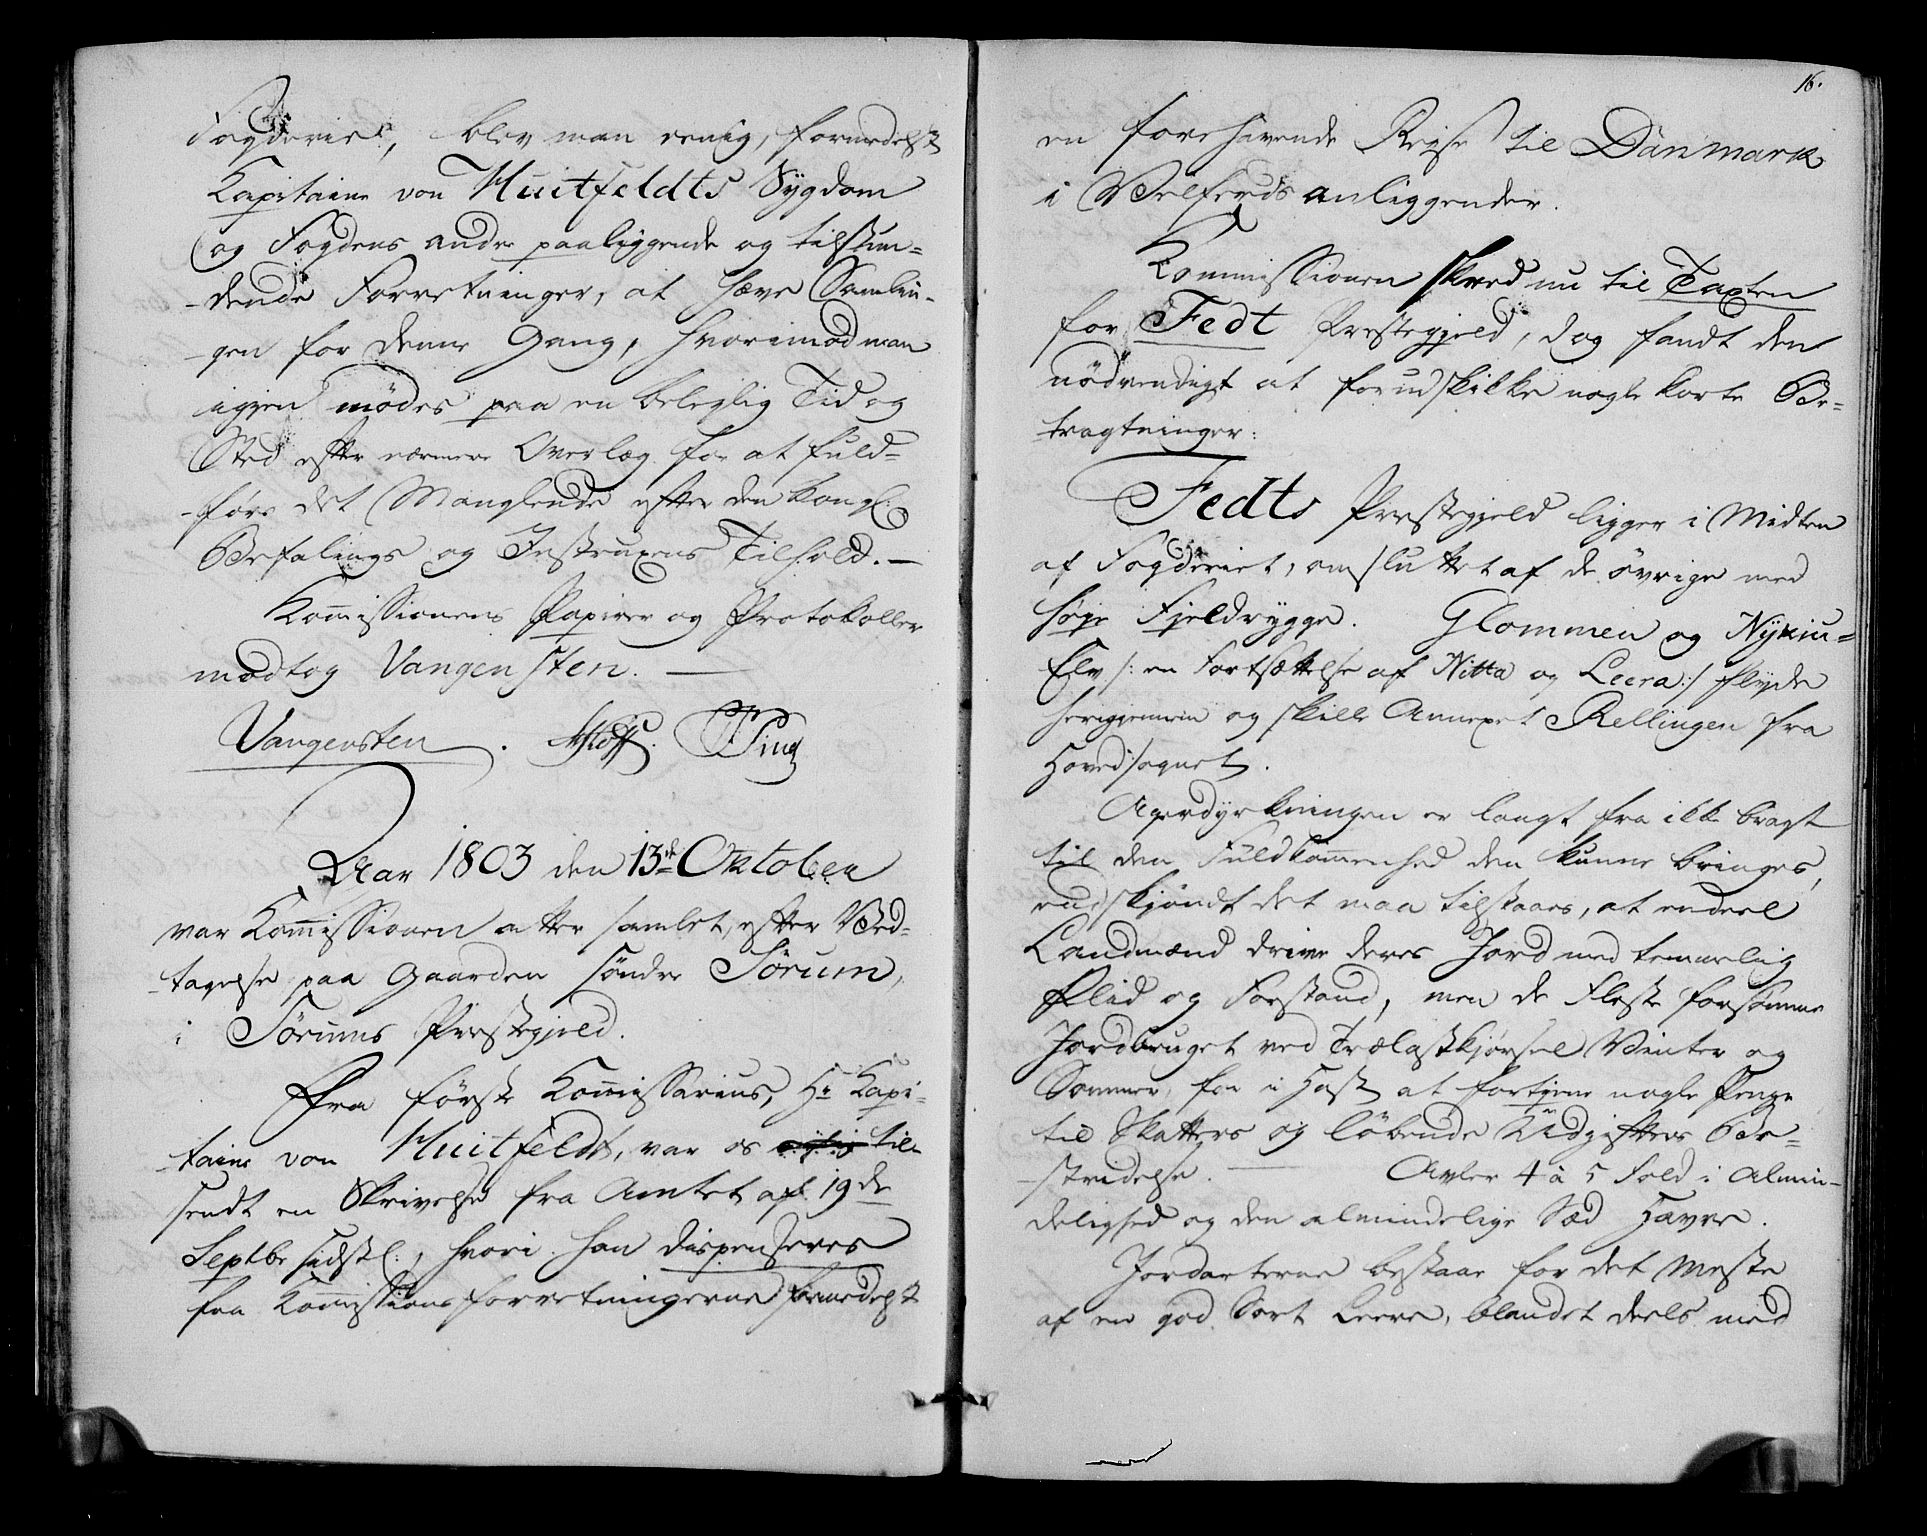 Fogderiet, blev man eenig, formedelst
Kapitaine von Huitfeldts Sygdom
og Fogdens andre paaliggende og tilstun-
-dende Forretninger, at hæve Samlin-
-gen for denne Gang, hvorimod man
igjen mödes paa en beleglig Tid og
Sted efter nærmere Overlæg for at fuld-
-före det Manglende efter den kongl.
Befalings og Instruxens Tilhold. —
Kom̄issionens Papirer og Protokoller
modtog Vangensten. —
Vangensten.
Aar 1803 den 13de Oktober
var Kom̄issionen atter samlet, efter Ved-
-tagelse paa Gaarden söndre Sörum,
i Sörums Præstegjeld.
Fra förste Kom̄issarius, Hr Kapi-
-taine von Huitfeldt, var os til-
sendt en Skrivelse fra Amtet af 19de
Septbr sidstl:, hvori han dispenseres
fra Kom̄issionsforretningerne formedelst
16.
en forehavende Rejse til Danmark
i Velferds anliggender.
Kommissionen skred nu til Taxten
for Fedt Prestegjeld, dog fandt den
nödvendigt at forudskikke nogle korte Be-
-tragtninger:
Fedts Prestegjeld ligger i Midten
af Fogderiet, omsluttet af de övrige med
höje Fjeldrygge. Glommen og Nyniu-
Elv /: en Fortsættelse af Nitta og Leera :/ flyde
herigjennem og skille Annexet Rellingen fra
Hovedsognet.
Agerdyrkningen er langt fra ikke bragt
til den Fuldkom̄enhed den kunne bringes,
endskjöndt det maa tilstaaes, at endeel
Landmænd drive deres Jord med temmelig
Flid og Forstand, men de Fleste forsömme
Jordbruget ved Trælastkjörsel Vinter og
Sommer, for i Hast at fortjene nogle Penge
til Skatters og löbende Udgifters Be-
-stridelse. — Avler 4 à 5 Fold i Almin-
delighed og den almindelige Sæd Havre.
Jordarterne bestaar for det Meste
af en god Sort Leere, blandet deels med